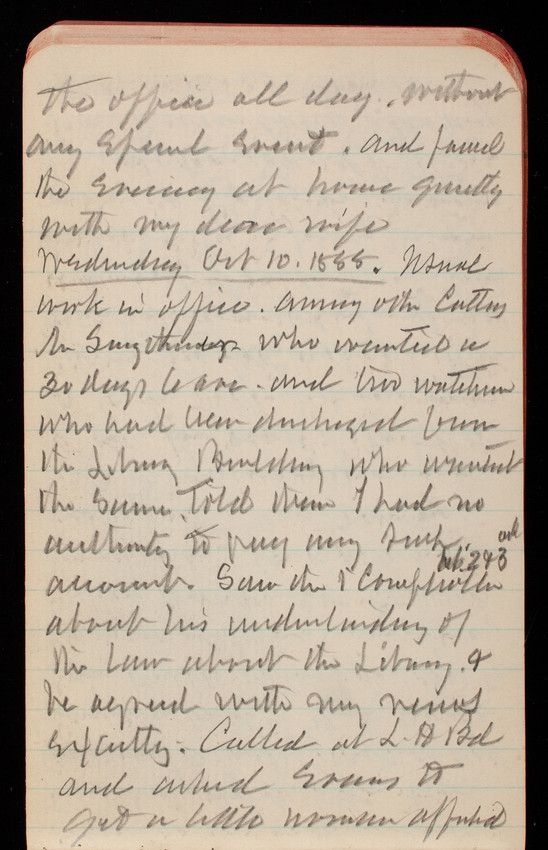 the office all day, without
any special event. and passed
the evening at home quietly
with my dear wife
Wednesday Oct 10. 1888. Usual
work in office. among other callers
Mr who wanted a
30 days leave. and two watchmen
who had been discharged from
the Library Building who wanted
the same. Told them I had no
authority to pay any such
account. Saw the 1 Comptroller
about his understanding of
the law about the Library. &
he agreed with my views
exactly. Called at L. H Bd
and asked Evans to
get a little woman appointed